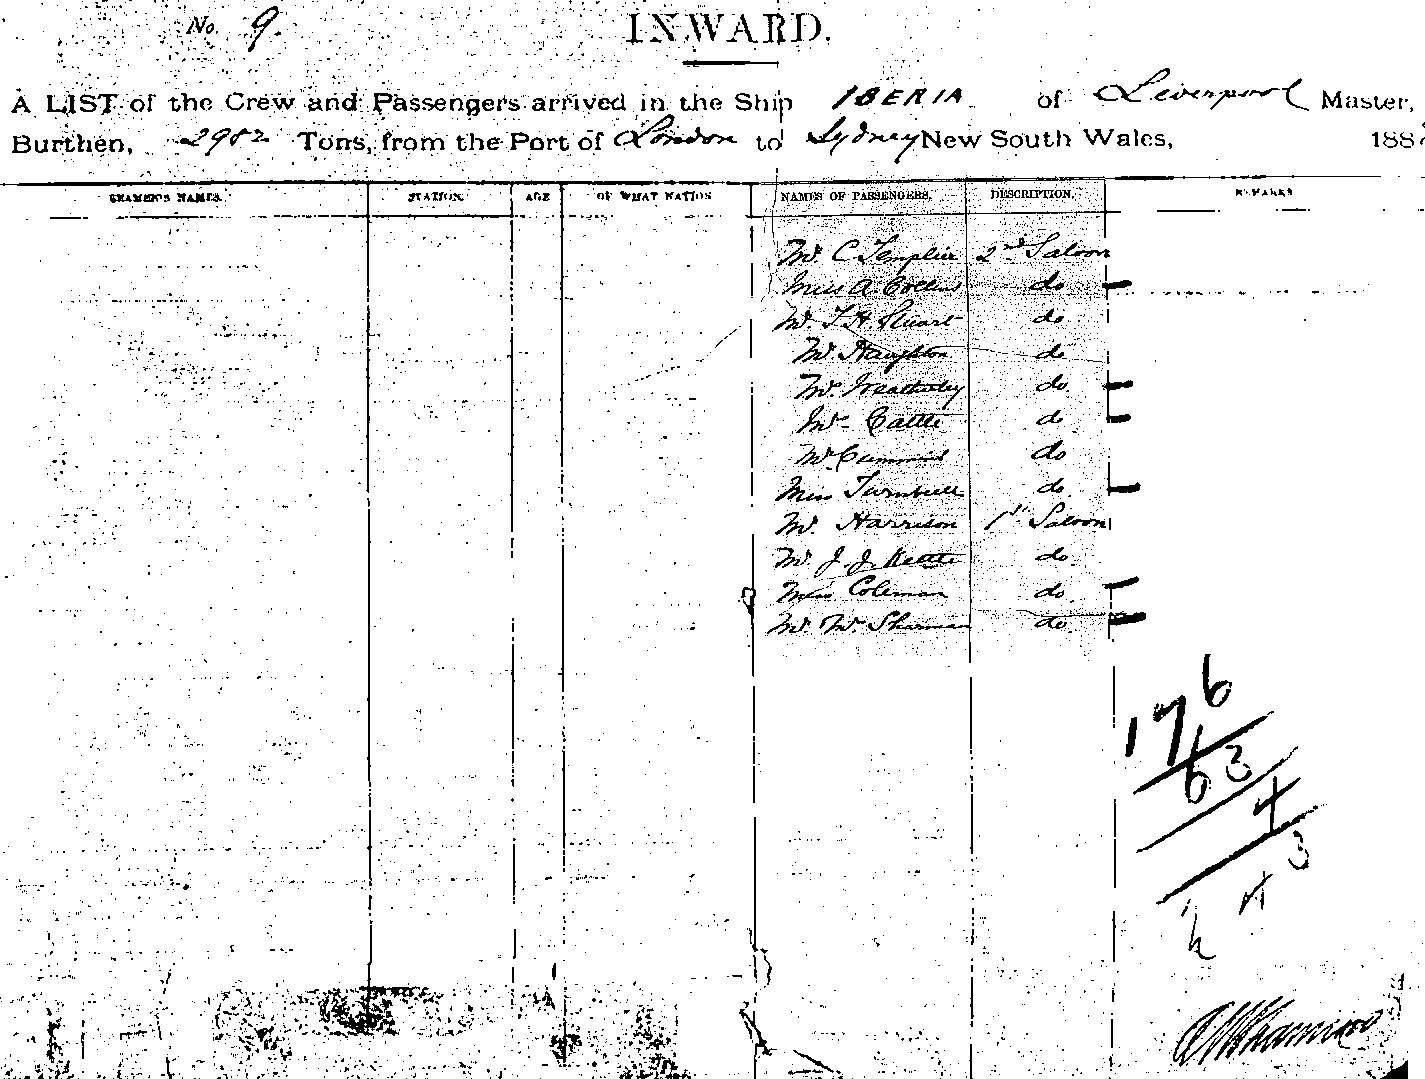 No. 9.
INWARD.
A LIST of the Crew and Passengers arrived in the Ship IBERIA of Liverpool Master,
Burthen, 2982 Tons, from the Port of London to Sydney New South Wales, 188
SEAMEN'S NAMES. STATION. AGE OF WHAT NATION NAMES OF PASSENGERS. DESCRIPTION. REMARKS
Mr. C Templier 2nd Saloon
Miss A Collins do
Mr. T. H. Stuart do
Mr. Haughton do
Mr. Weatherley do
Mr do
Mr. do
Miss Turnbull do
Mr. Harrison 1st Saloon
Mr. J. J. Kettle do
Miss Coleman do
Mr. W. Sharman do
176
63
4
3
4